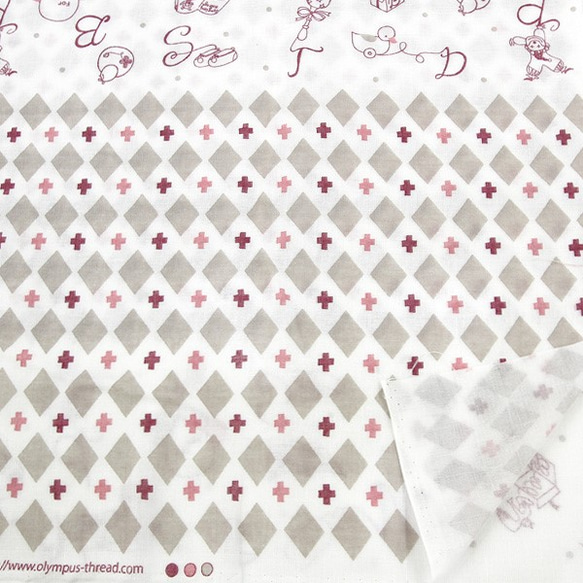 B S T d d
//www.olympus-thread.com